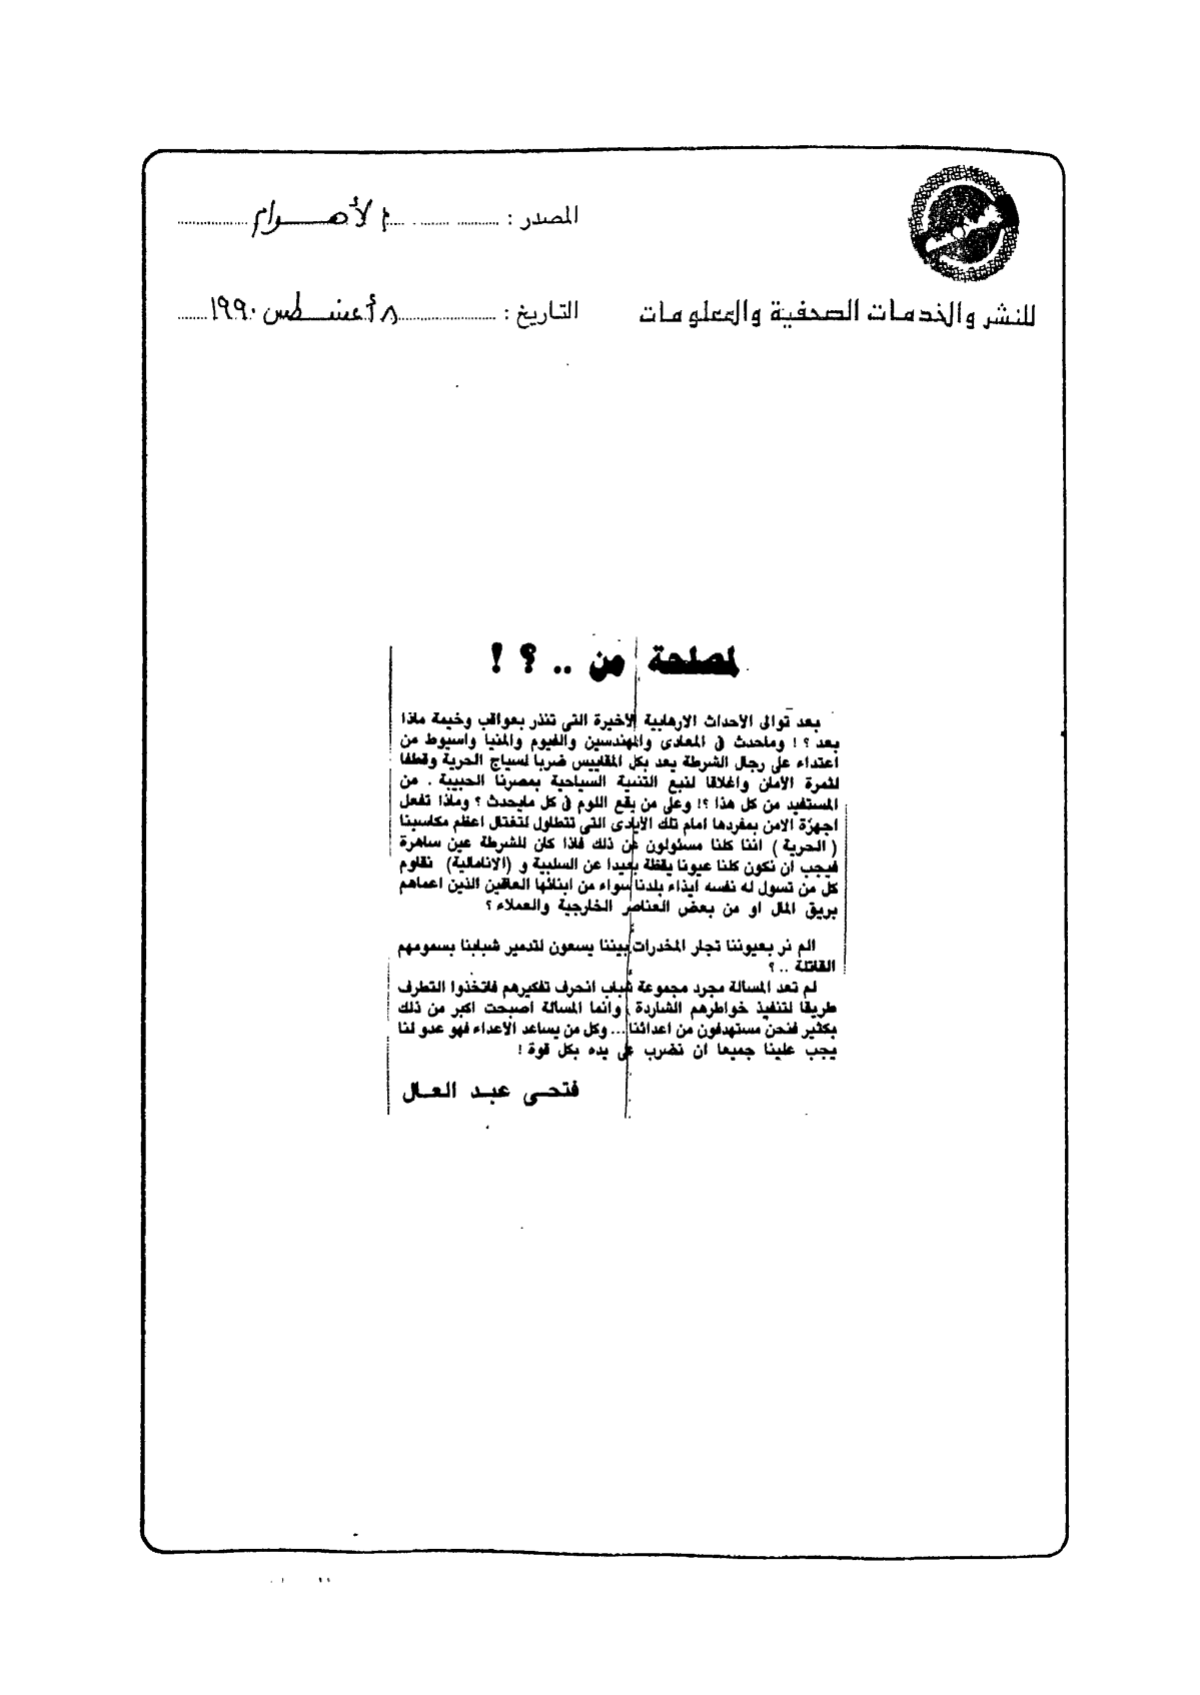 المصدر : الأهرام
للنشر والخدمات الصحفية والمعلومات
التاريخ : ٨ أغسطس ١٩٩٠
لمصلحة من .. ؟ !
بعد توالى الاحداث الارهابية الاخيرة التى تنذر بعواقب وخيمة ماذا
بعد ؟ ! وماحدث فى المعادى والمهندسين والفيوم والمنيا واسيوط من
اعتداء على رجال الشرطة يعد بكل المقاييس ضربا لسياج الحرية وقطفا
لثمرة الأمان واغلاقا لنبع التنمية السياحية بمصرنا الحبيبة . من
المستفيد من كل هذا ؟! وعلى من يقع اللوم فى كل مايحدث ؟ وماذا تفعل
اجهزة الامن بمفردها امام تلك الأيادى التى تتطاول لتغتال اعظم مكاسبنا
( الحرية ) اننا كلنا مسئولون عن ذلك فاذا كان للشرطة عين ساهرة
فيجب ان نكون كلنا عيونا يقظة بعيدا عن السلبية و (الانامالية) نقاوم
كل من تسول له نفسه ايذاء بلدنا سواء من ابنائها العاقين الذين اعماهم
بريق المال او من بعض العناصر الخارجية والعملاء ؟
الم نر بعيوننا تجار المخدرات بيننا يسعون لتدمير شبابنا بسمومهم
القاتلة .. ؟
لم تعد المسالة مجرد مجموعة شباب انحرف تفكيرهم فاتخذوا التطرف
طريقا لتنفيذ خواطرهم الشاردة وانما المسالة اصبحت اكبر من ذلك
بكثير فنحن مستهدفون من اعدائنا ... وكل من يساعد الاعداء فهو عدو لنا
يجب علينا جميعا ان نضرب على يده بكل قوة !
فتحى عبد العال